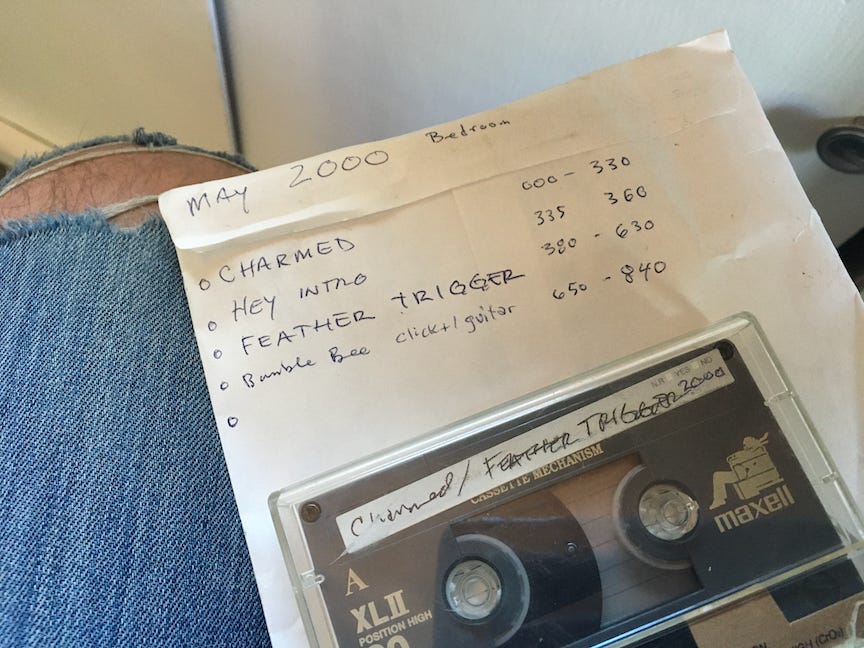 MAY 2000 Bedroom
CHARMED 000 - 330
HEY INTRO 335 360
FEATHER TRIGGER 380 - 630
Bumble Bee click+/guitar 650 - 840
N.R YES NO
Charmed / FEATHER TRIGGER 2000
CASSETTE MECHANISM
maxell
A
XLII
POSITION HIGH
90
HIGH (CrO2)